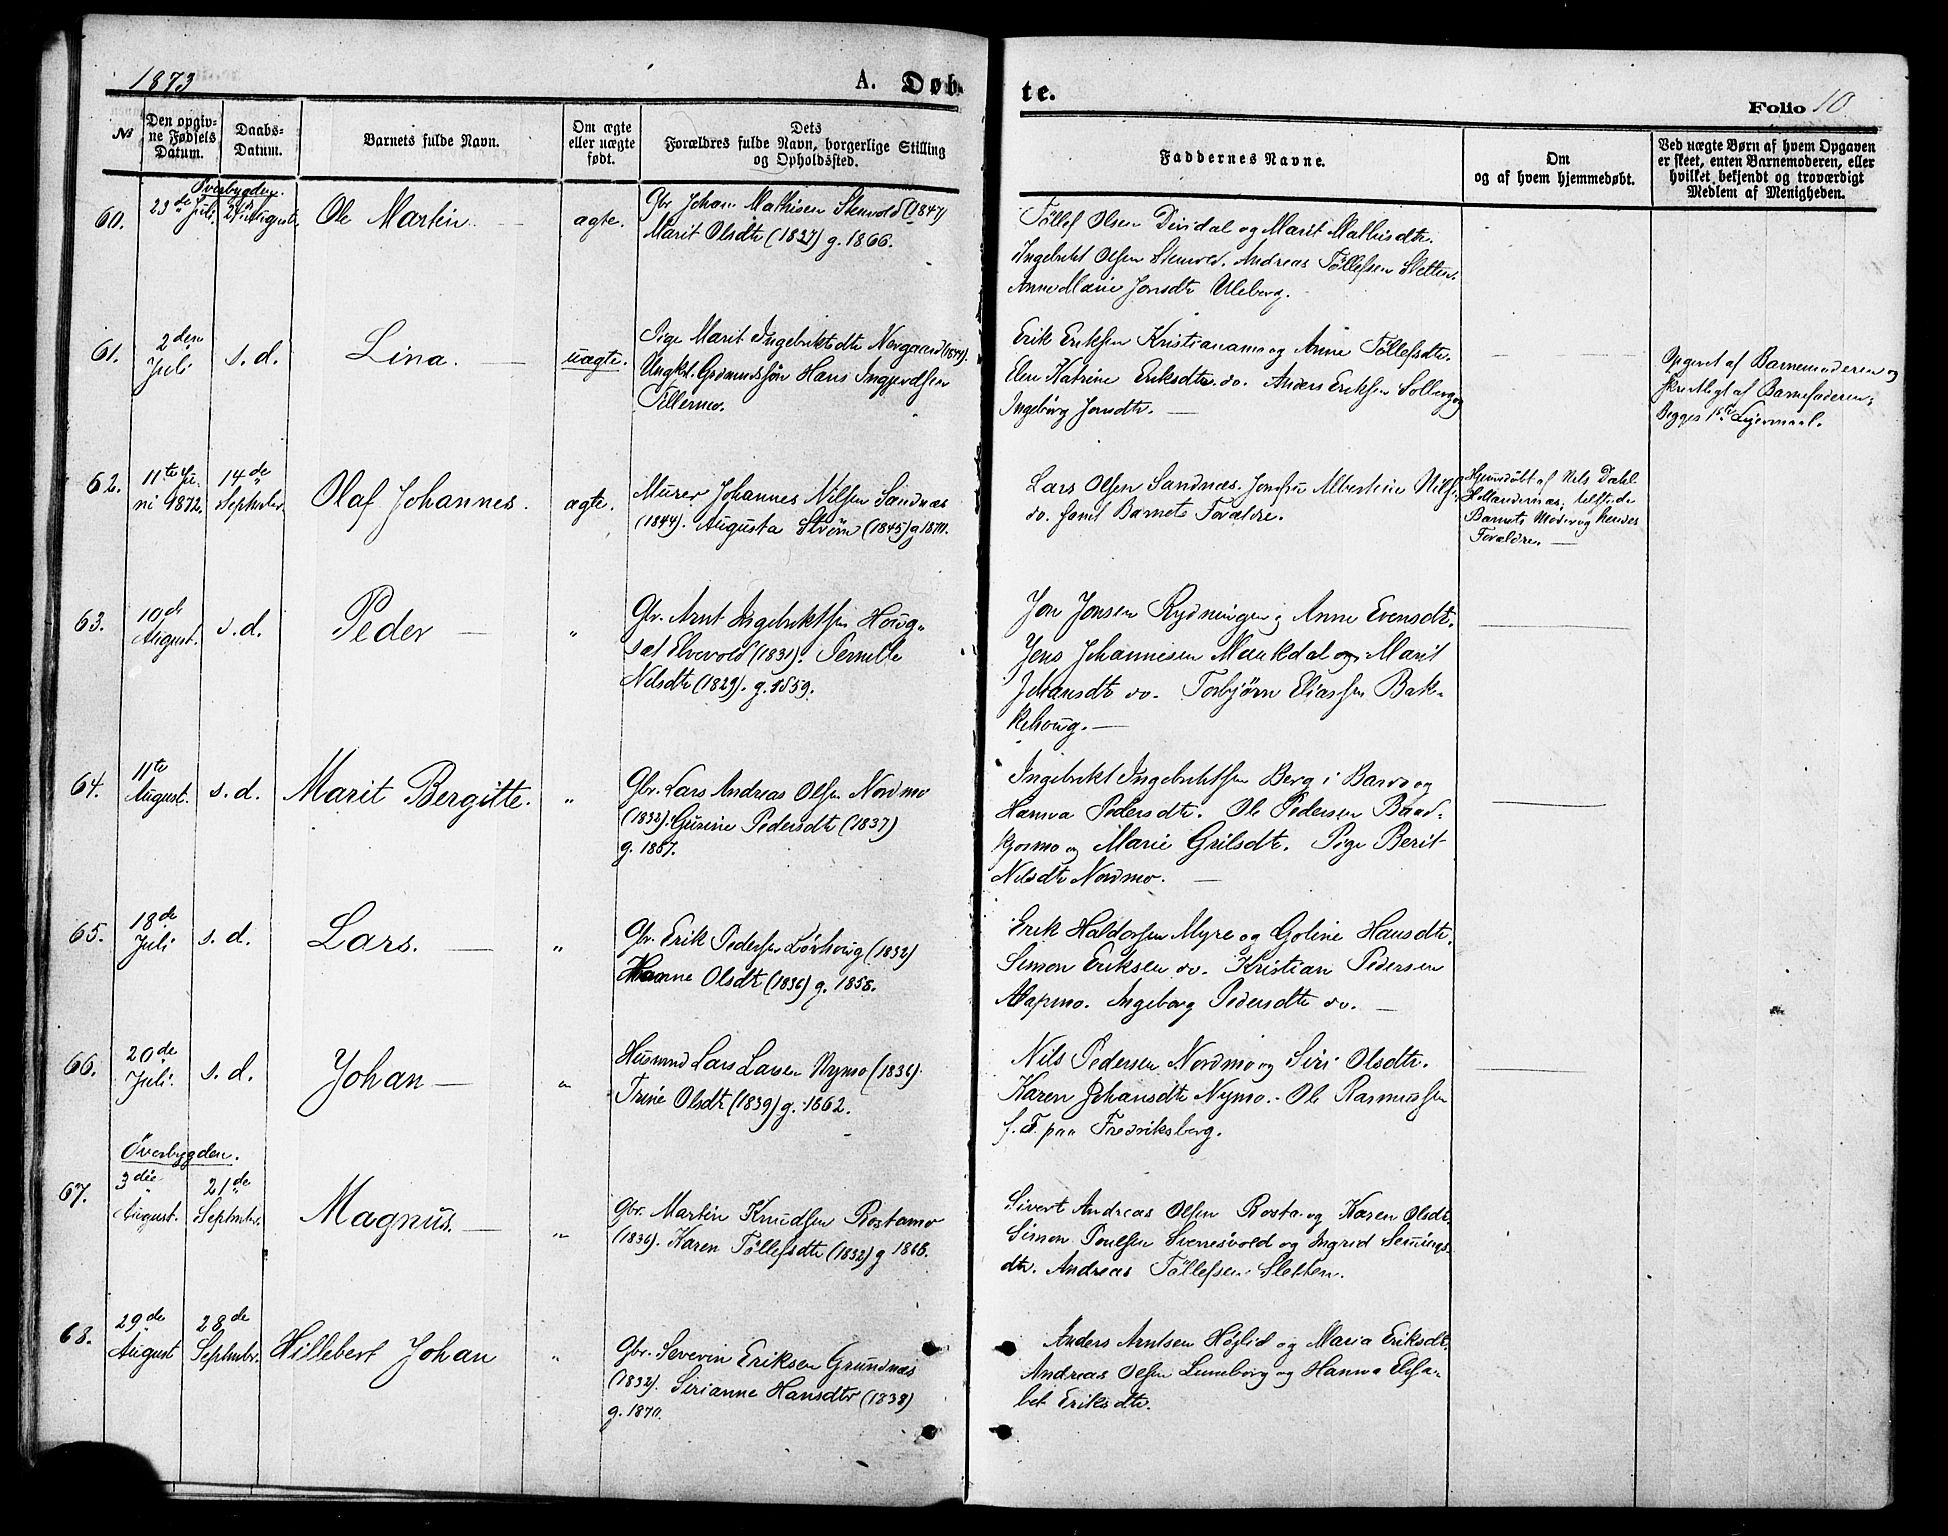 1873
A. Døb-
te.
Folio 10.
No
Den opgiv-
ne Fødsels
Datum.
Daabs-
Datum.
Barnets fulde Navn.
Om ægte
eller uægte
født.
Dets
Forældres fulde Navn, borgerlige Stilling
og Opholdssted.
Faddernes Navne.
Om
og af hvem hjemmedøbt.
Ved uægte Børn af hvem Opgaven
er skeet, enten Barnemoderen, eller
hvilket bekjendt og troværdigt
Medlem af Menigheden.
Överbygden.
60.
23de Juli.
August.
Ole Martin.
ægte.
Gbr. Johan Mathisen Stenvold (1847)
Marit Olsdtr (1837) g. 1866.
Tollef Olsen Dividal og Marit Mathisdtr.
Ingebrikt Olsen Stenvold. Andreas Töllefsen Sletten.
Anne Marie Jonsdtr Uleberg.
61.
2den
Juli
s. d.
Lina.
uægte.
Pige Marit Ingebriktsdtr Norgaard
Ungkl. Gaardmandssøn Hans Ingjerdsen
Erik Eriksen Kristianamo og Anne Töllefsdtr.
Elen Katrine Eriksdtr. do. Anders Eriksen Solberg og
Ingeborg Jonsdtr.
Opgivet af Barnemoderen og
skriftligt af Barnefaderen;
Begges 1ste Lejermaal.
62.
11te Ju-
ni 1872.
14de
September
Olaf Johannes.
ægte.
Murer Johannes Nilsen Sandnæs
(1844). Augusta Strøm (1845) g. 1870.
Lars Olsen Sandnæs. Jomfru Albertine
do. samt Barnets Forældre.
Hjemdøbt af Nels Dahl
Hollandernæs, tilstede
Barnets Moder og hendes
Forældre.
63.
10de
August.
s. d.
Peder
"
Gbr. Arnt Ingebriktsen Houg-
set Elvevold (1831). Pernille
Nilsdtr (1829). g. 1859.
Jon Jonsen Rydningen og Anne Evensdtr.
Jens Johannesen Maukdal og Marit
Johansdtr do. Torbjørn Eliassen Bak-
kehoug.
64.
11te
August.
s. d.
Marit Bergitte.
"
Gbr. Lars Andreas Olsen Nordmo
(1832). Gurine Pedersdtr (1837)
g. 1867.
Ingebrikt Ingebriktsen Berg i Bardo og
Hanna Pedersdtr. Ole Pedersen Baad-
kjosmo og Marie Grilsdtr. Pige Berit
Nilsdtr Nordmo.
65.
18de
Juli
s. d.
Lars.
"
Gbr. Erik Pedersen Løvhoug (1832)
Hanne Olsdtr (1836) g. 1858.
Erik Haldorsen Myre og Goline Hansdtr.
Simon Eriksen do. Kristian Pedersen
Alapmo. Ingeborg Pedersdtr do.
66.
20de
Juli.
s. d.
Johan
"
Husmand Lars Larsen Nymo (1836).
Trine Olsdtr (1839) g. 1862.
Nils Pedersen Nordmo og Siri Olsdtr.
Karen Johansdtr Nymo. Ole Rasmussen
f. T. paa Fredriksberg.
Överbygden.
67.
3die
August.
21de
September.
Magnus.
"
Gbr. Martin Knudsen Rostamo
(1836). Karen Töllefsdtr (1832) g. 1868.
Sivert Andreas Olsen Rosta og Karen Olsdtr.
Simon Poulsen Svenesvold og Ingrid Semings-
dtr. Andreas Töllefsen Sletten.
68.
29de
August
28de
September.
Hillebert Johan
"
Gbr. Severin Eriksen Grundnæs
(1832). Sirianne Hansdtr (1838)
g. 1870.
Anders Arntsen Höglid og Maria Eriksdtr.
Andreas Olsen Luneborg og Hanna Elisa-
bet Eriksdtr.